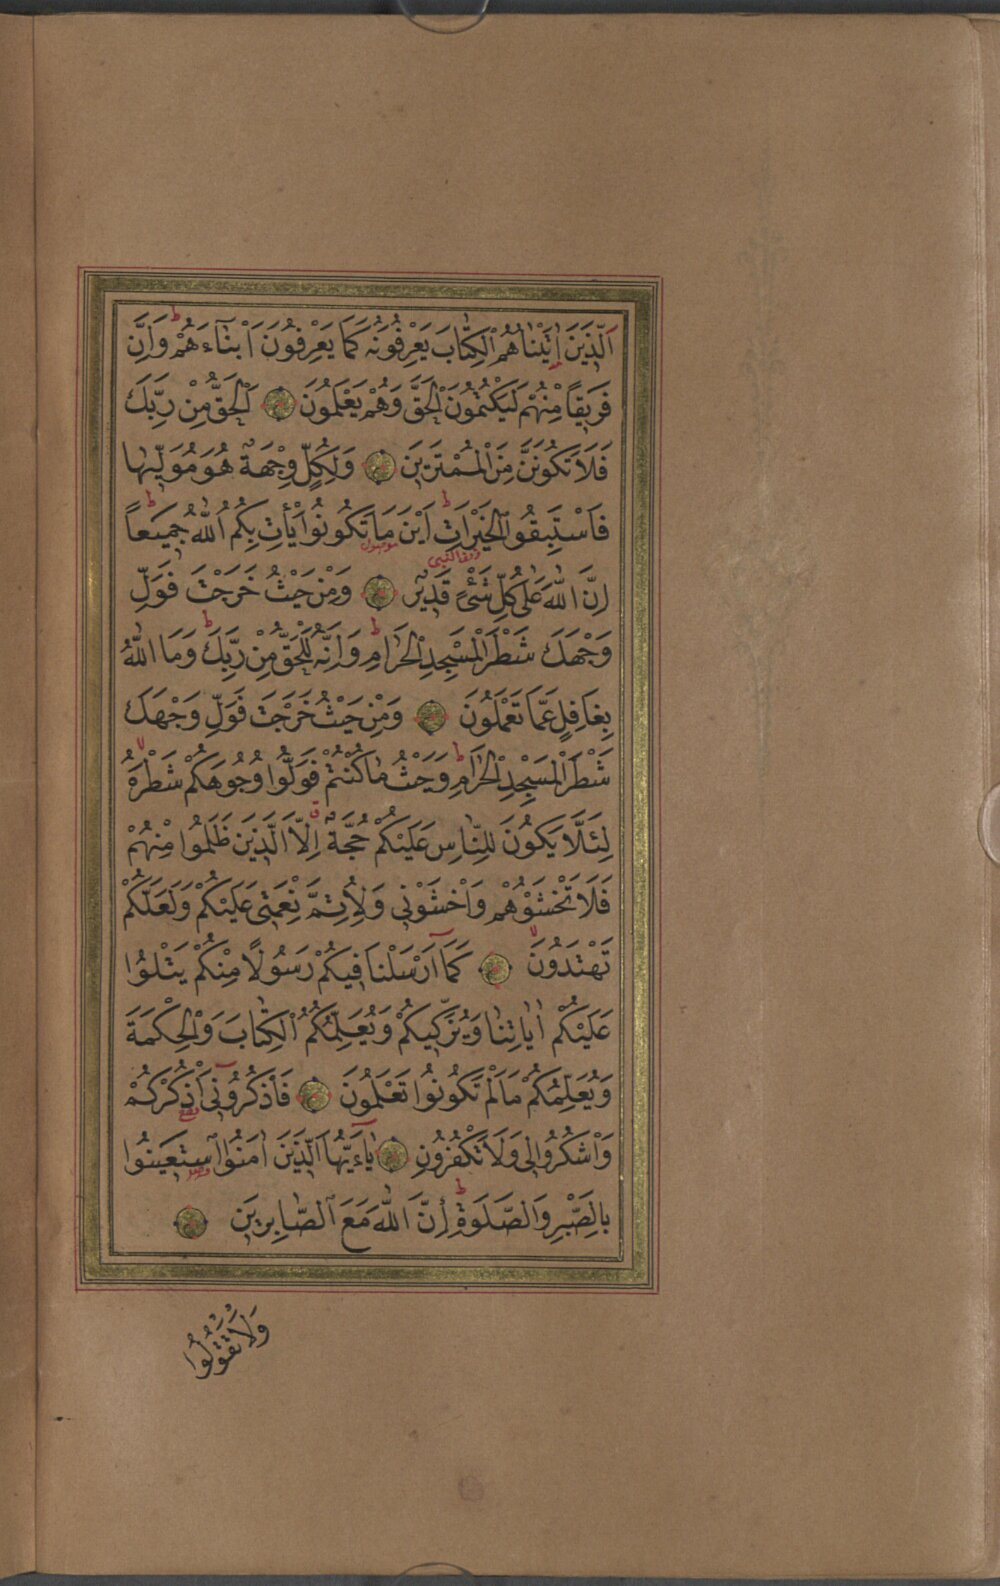 اَلَّذِينَ اٰتَيْنَاهُمُ الْكِتَابَ يَعْرِفُونَهُ كَمَا يَعْرِفُونَ اَبْنَٓاءَهُمْ ط وَاِنَّ
فَرِيقًا مِنْهُمْ لَيَكْتُمُونَ الْحَقَّ وَهُمْ يَعْلَمُونَ اَلْحَقُّ مِنْ رَبِّكَ
فَلَا تَكُونَنَّ مِنَ الْمُمْتَرِينَ وَلِكُلٍّ وِجْهَةٌ هُوَ مُوَلِّيهَا
فَاسْتَبِقُوا الْخَيْرَاتِ ط اَيْنَ مَا تَكُونُوا يَأْتِ بِكُمُ اللّٰهُ جَمِيعًا ط
موصول وقف النبى
اِنَّ اللّٰهَ عَلٰى كُلِّ شَيْءٍ قَدِيرٌ وَمِنْ حَيْثُ خَرَجْتَ فَوَلِّ
وَجْهَكَ شَطْرَ الْمَسْجِدِ الْحَرَامِ ط وَاِنَّهُ لَلْحَقُّ مِنْ رَبِّكَ ط وَمَا اللّٰهُ
بِغَافِلٍ عَمَّا تَعْمَلُونَ وَمِنْ حَيْثُ خَرَجْتَ فَوَلِّ وَجْهَكَ
شَطْرَ الْمَسْجِدِ الْحَرَامِ ط وَحَيْثُ مَا كُنْتُمْ فَوَلُّوا وُجُوهَكُمْ شَطْرَهُ لا
لِئَلَّا يَكُونَ لِلنَّاسِ عَلَيْكُمْ حُجَّةٌ ق اِلَّا الَّذِينَ ظَلَمُوا مِنْهُمْ
فَلَا تَخْشَوْهُمْ وَاخْشَوْنِي وَلِاُتِمَّ نِعْمَتِي عَلَيْكُمْ وَلَعَلَّكُمْ
تَهْتَدُونَ لا كَمَٓا اَرْسَلْنَا فِيكُمْ رَسُولًا مِنْكُمْ يَتْلُوا
عَلَيْكُمْ اٰيَاتِنَا وَيُزَكِّيكُمْ وَيُعَلِّمُكُمُ الْكِتَابَ وَالْحِكْمَةَ
وَيُعَلِّمُكُمْ مَا لَمْ تَكُونُوا تَعْلَمُونَ فَاذْكُرُونِٓي اَذْكُرْكُمْ
وَاشْكُرُوا لِي وَلَا تَكْفُرُونِ يَٓاءَيُّهَا الَّذِينَ اٰمَنُوا اسْتَعِينُوا
بِالصَّبْرِ وَالصَّلٰوةِ ط اِنَّ اللّٰهَ مَعَ الصَّابِرِينَ
وَلَا تَقُولُوا